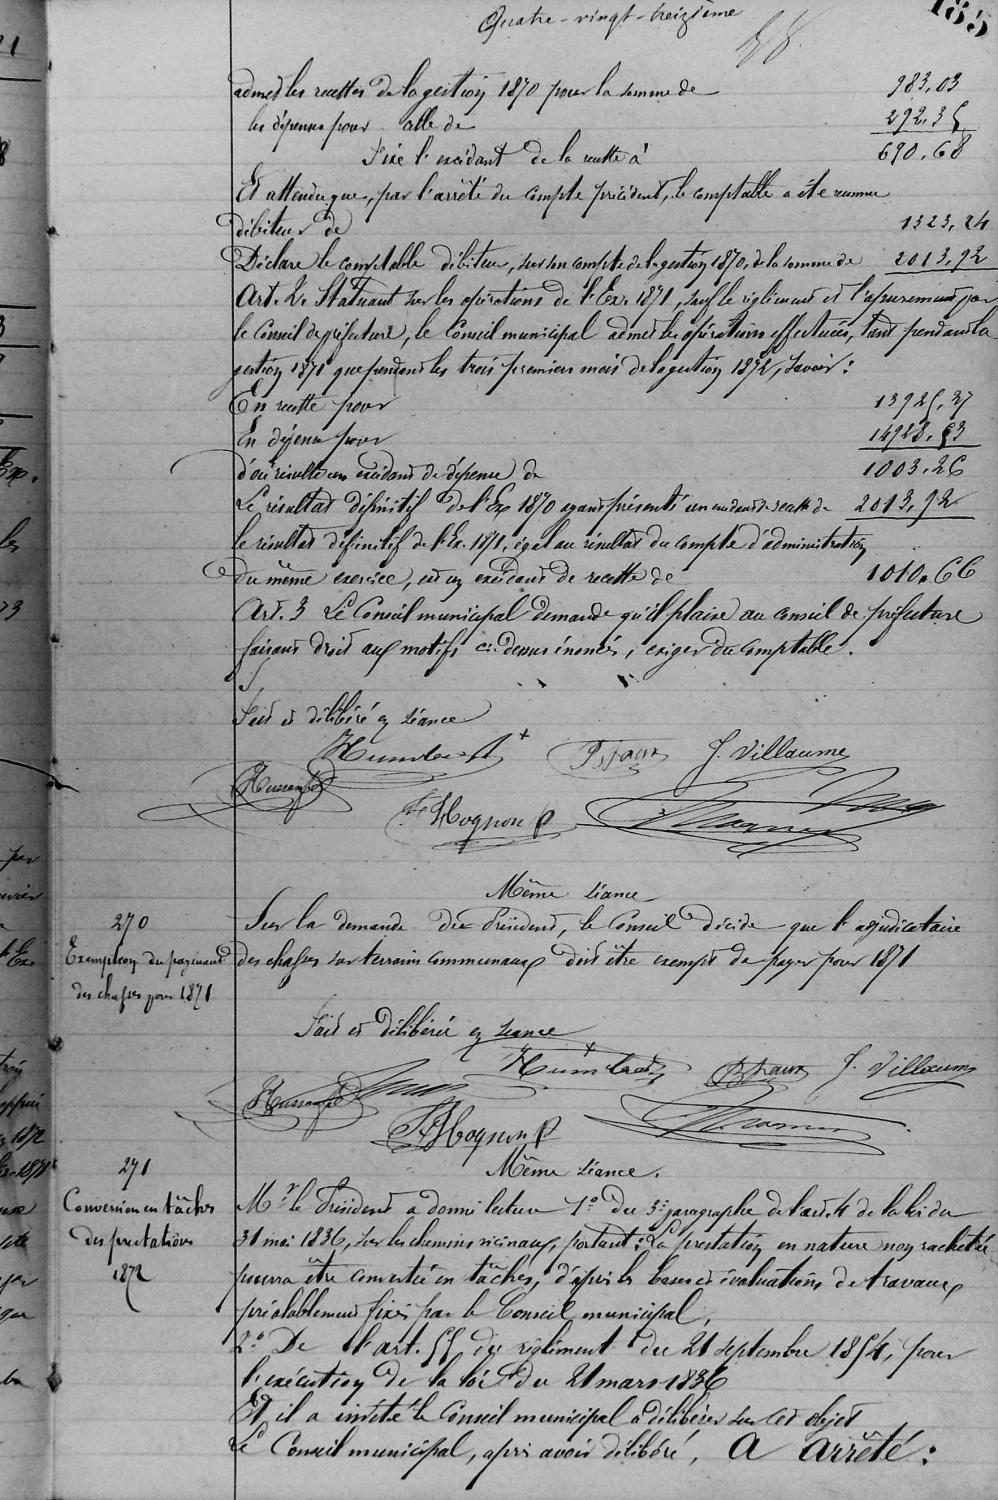 Quatre-vingt-treizième
185
admet les recettes de la gestion 1870 pour la somme de 983,03
les dépenses pour celle de 292,35
Fixe l'excédant de la recette à 690,68
Et attendu que, par l'arrêté du compte précédent, le comptable a été reconnu
débiteur de 1323,24
Déclare le comptable débiteur, sur son compte de la gestion 1870, de la somme de 2013,92
Art. 2. Statuant sur les opérations de l'Ex. 1871, sauf le règlement et l'apurement par
le Conseil de préfecture, le Conseil municipal admet les opérations effectuées, tant pendant la
gestion 1871 que pendant les trois premiers mois de la gestion 1872, savoir :
En recette pour 13925,27
En dépense pour 14928,53
d'où résulte un excédant de dépense de 1003,26
Le résultat définitif de l'Ex 1870 ayant présenté un excédant de recette de 2013,92
le résultat définitif de l'Ex. 1871, égal au résultat du compte d'administration
du même exercice, est un excédant de recette de 1010,66
Art. 3 Le Conseil municipal demande qu'il plaise au conseil de préfecture
faisant droit aux motifs ci-dessus énoncés, exiger du comptable.
Fait et délibéré en séance
Humbert
J. Villaume
Hognon
Même séance
270
Exemption du payement
des chasses pour 1871
Sur la demande du Président, le Conseil décide que l'adjudicataire
des chasses sur terrains communaux doit être exempt de payer pour 1871
Fait et délibéré en séance
Humbert
J. Villaume
Hognon
Même séance.
271
Conversion en tâches
des prestations
1872
Mr le Président a donné lecture 1° du 3e paragraphe de l'art. 4 de la loi du
31 mai 1836, sur les chemins vicinaux, portant : La prestation en nature non rachetée
pourra être convertie en tâches, d'après les bases et évaluations de travaux
préalablement fixés par le Conseil municipal,
2° De l'art. 55 du règlement du 21 septembre 1854, pour
l'exécution de la loi du 21 mars 1836
Et il a invité le Conseil municipal à délibérer sur cet objet
Le Conseil municipal, après avoir délibéré, A arrêté :